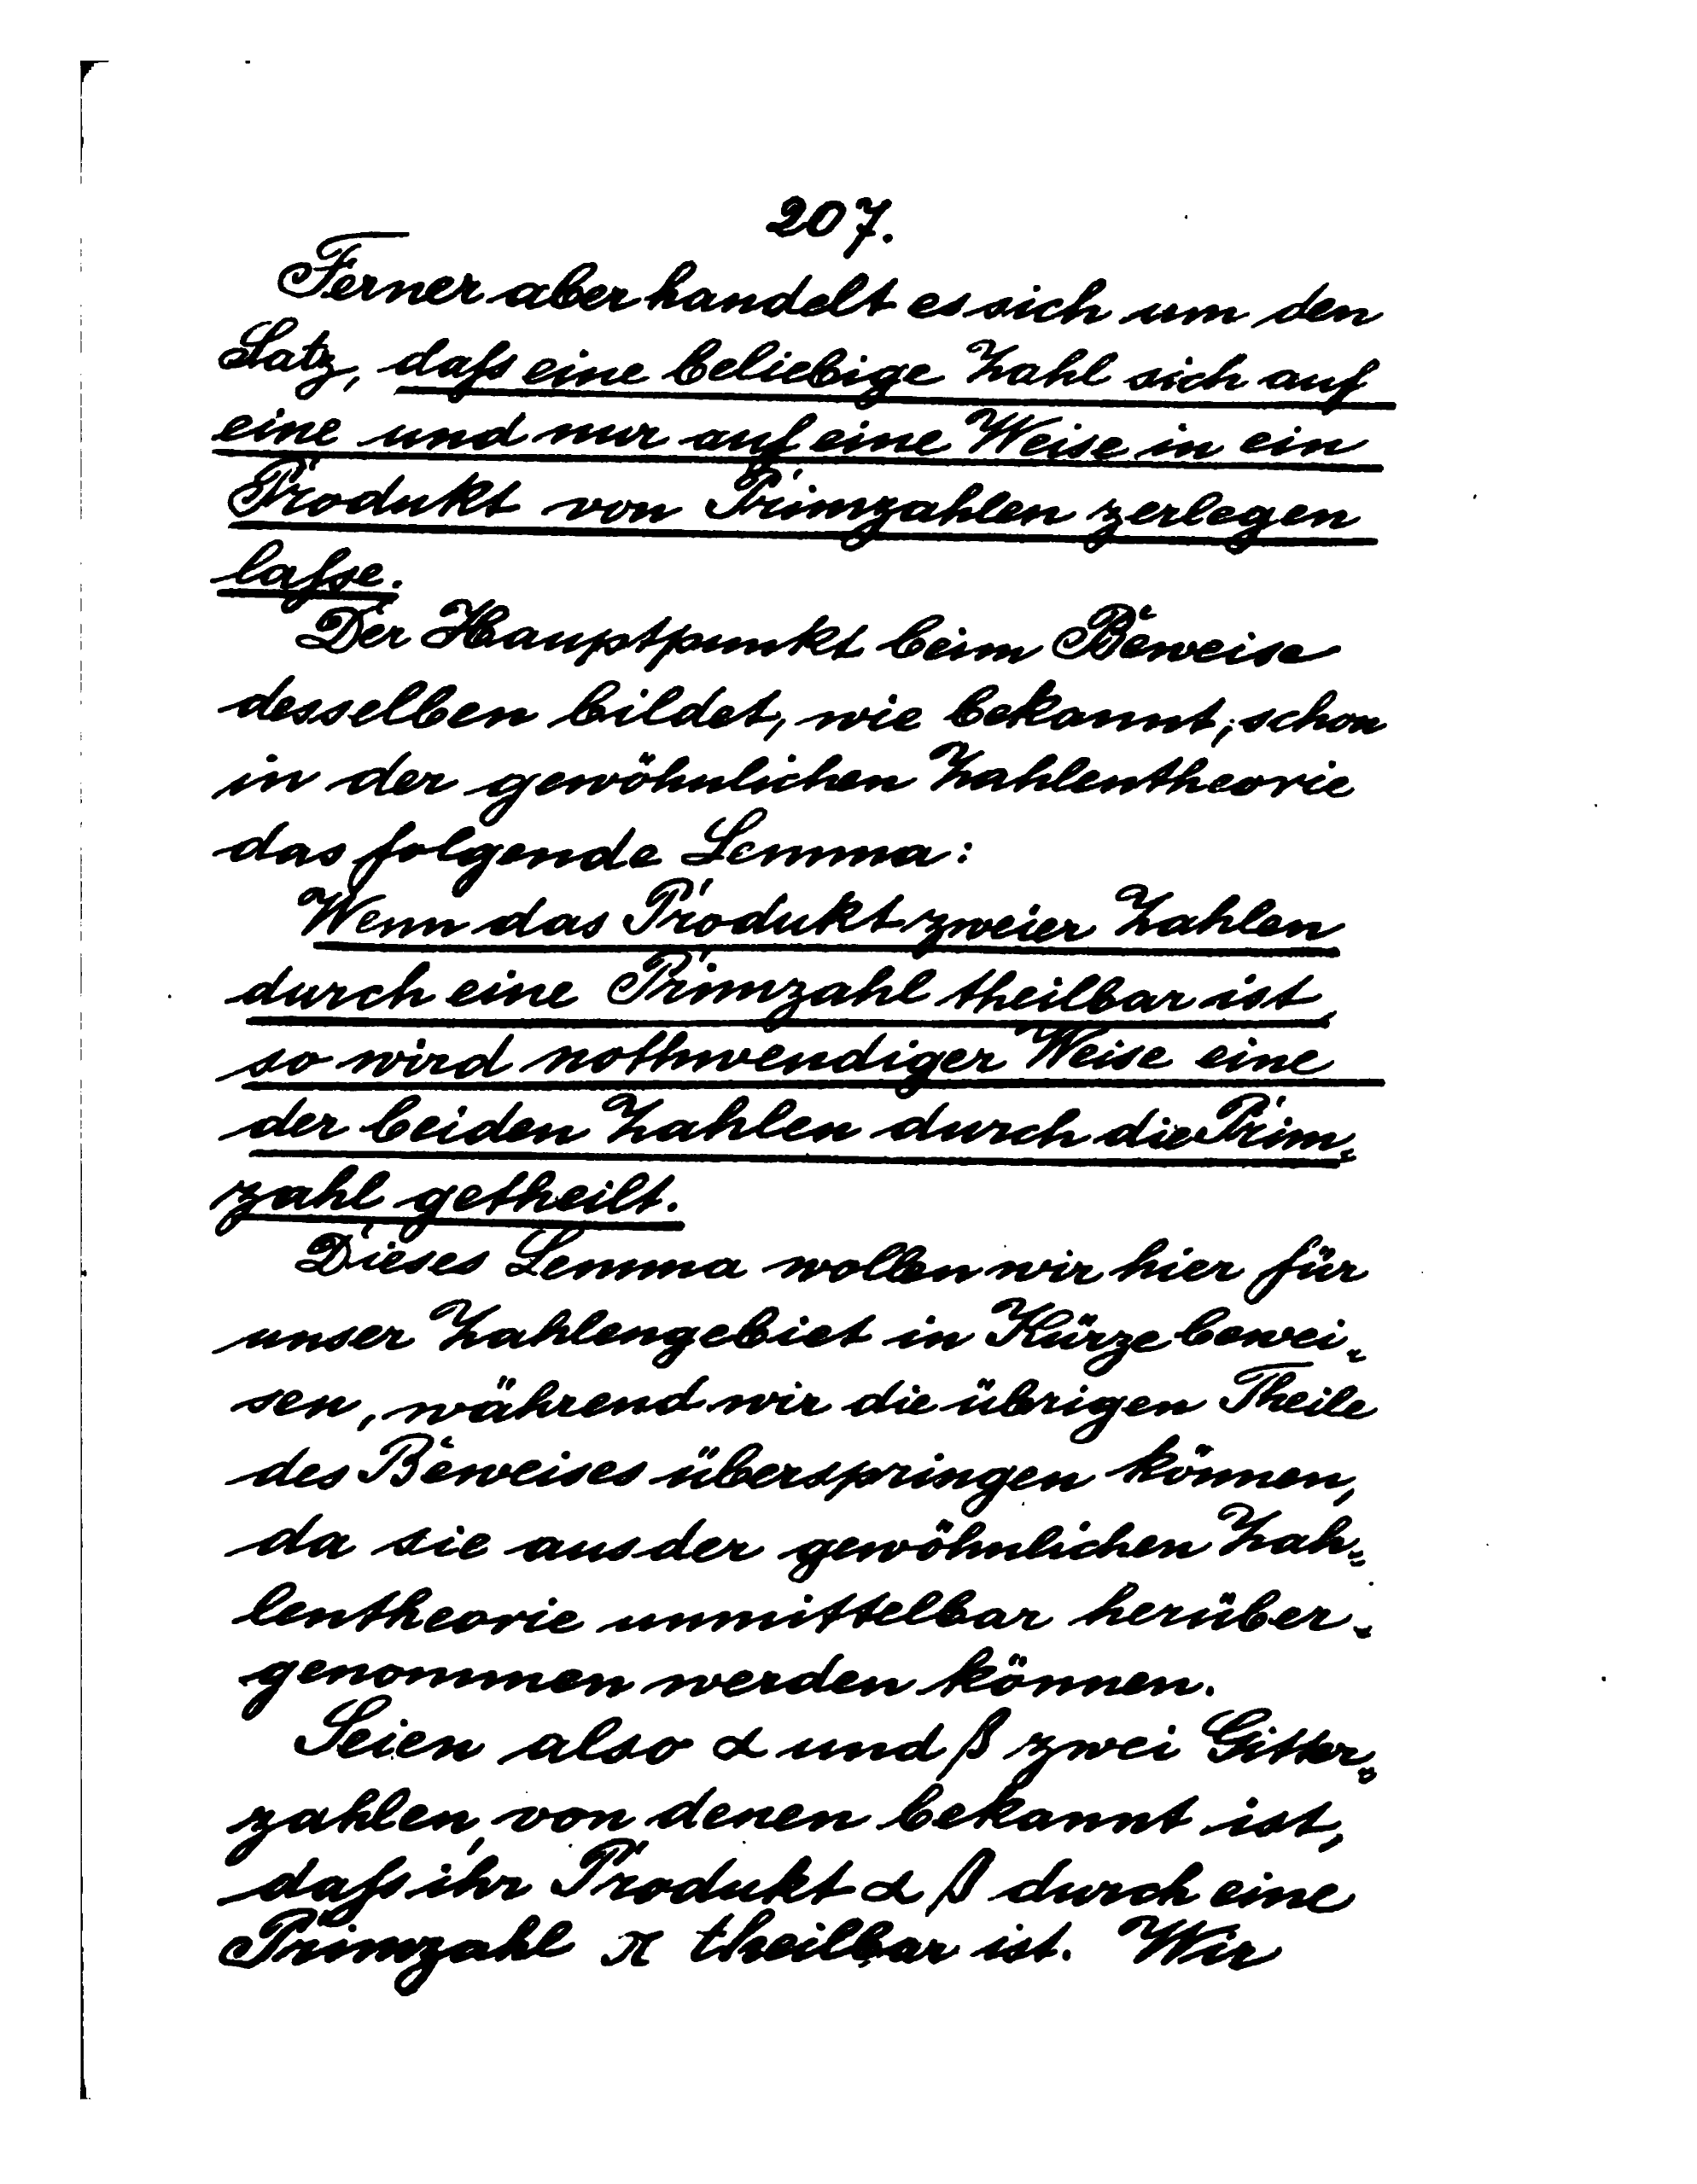 207.
Ferner aber handelt es sich um den
Satz, daß eine beliebige Zahl sich auf
eine und nur auf eine Weise in ein
Produkt von Primzahlen zerlegen
laße.
Der Hauptpunkt beim Beweise
desselben bildet, wie bekannt, schon
in der gewöhnlichen Zahlentheorie
das folgende Lemma:
Wenn das Produkt zweier Zahlen
durch eine Primzahl theilbar ist,
so wird nothwendiger Weise eine
der beiden Zahlen durch die Prim-
zahl getheilt.
Dieses Lemma wollen wir hier für
unser Zahlengebiet in Kürze bewei-
sen, während wir die übrigen Theile
des Beweises überspringen können,
da sie aus der gewöhnlichen Zah-
lentheorie unmittelbar herüber-
genommen werden können.
Seien also α und β zwei Gitter-
zahlen, von denen bekannt ist,
daß ihr Produkt α β durch eine
Primzahl π theilbar ist. Wir